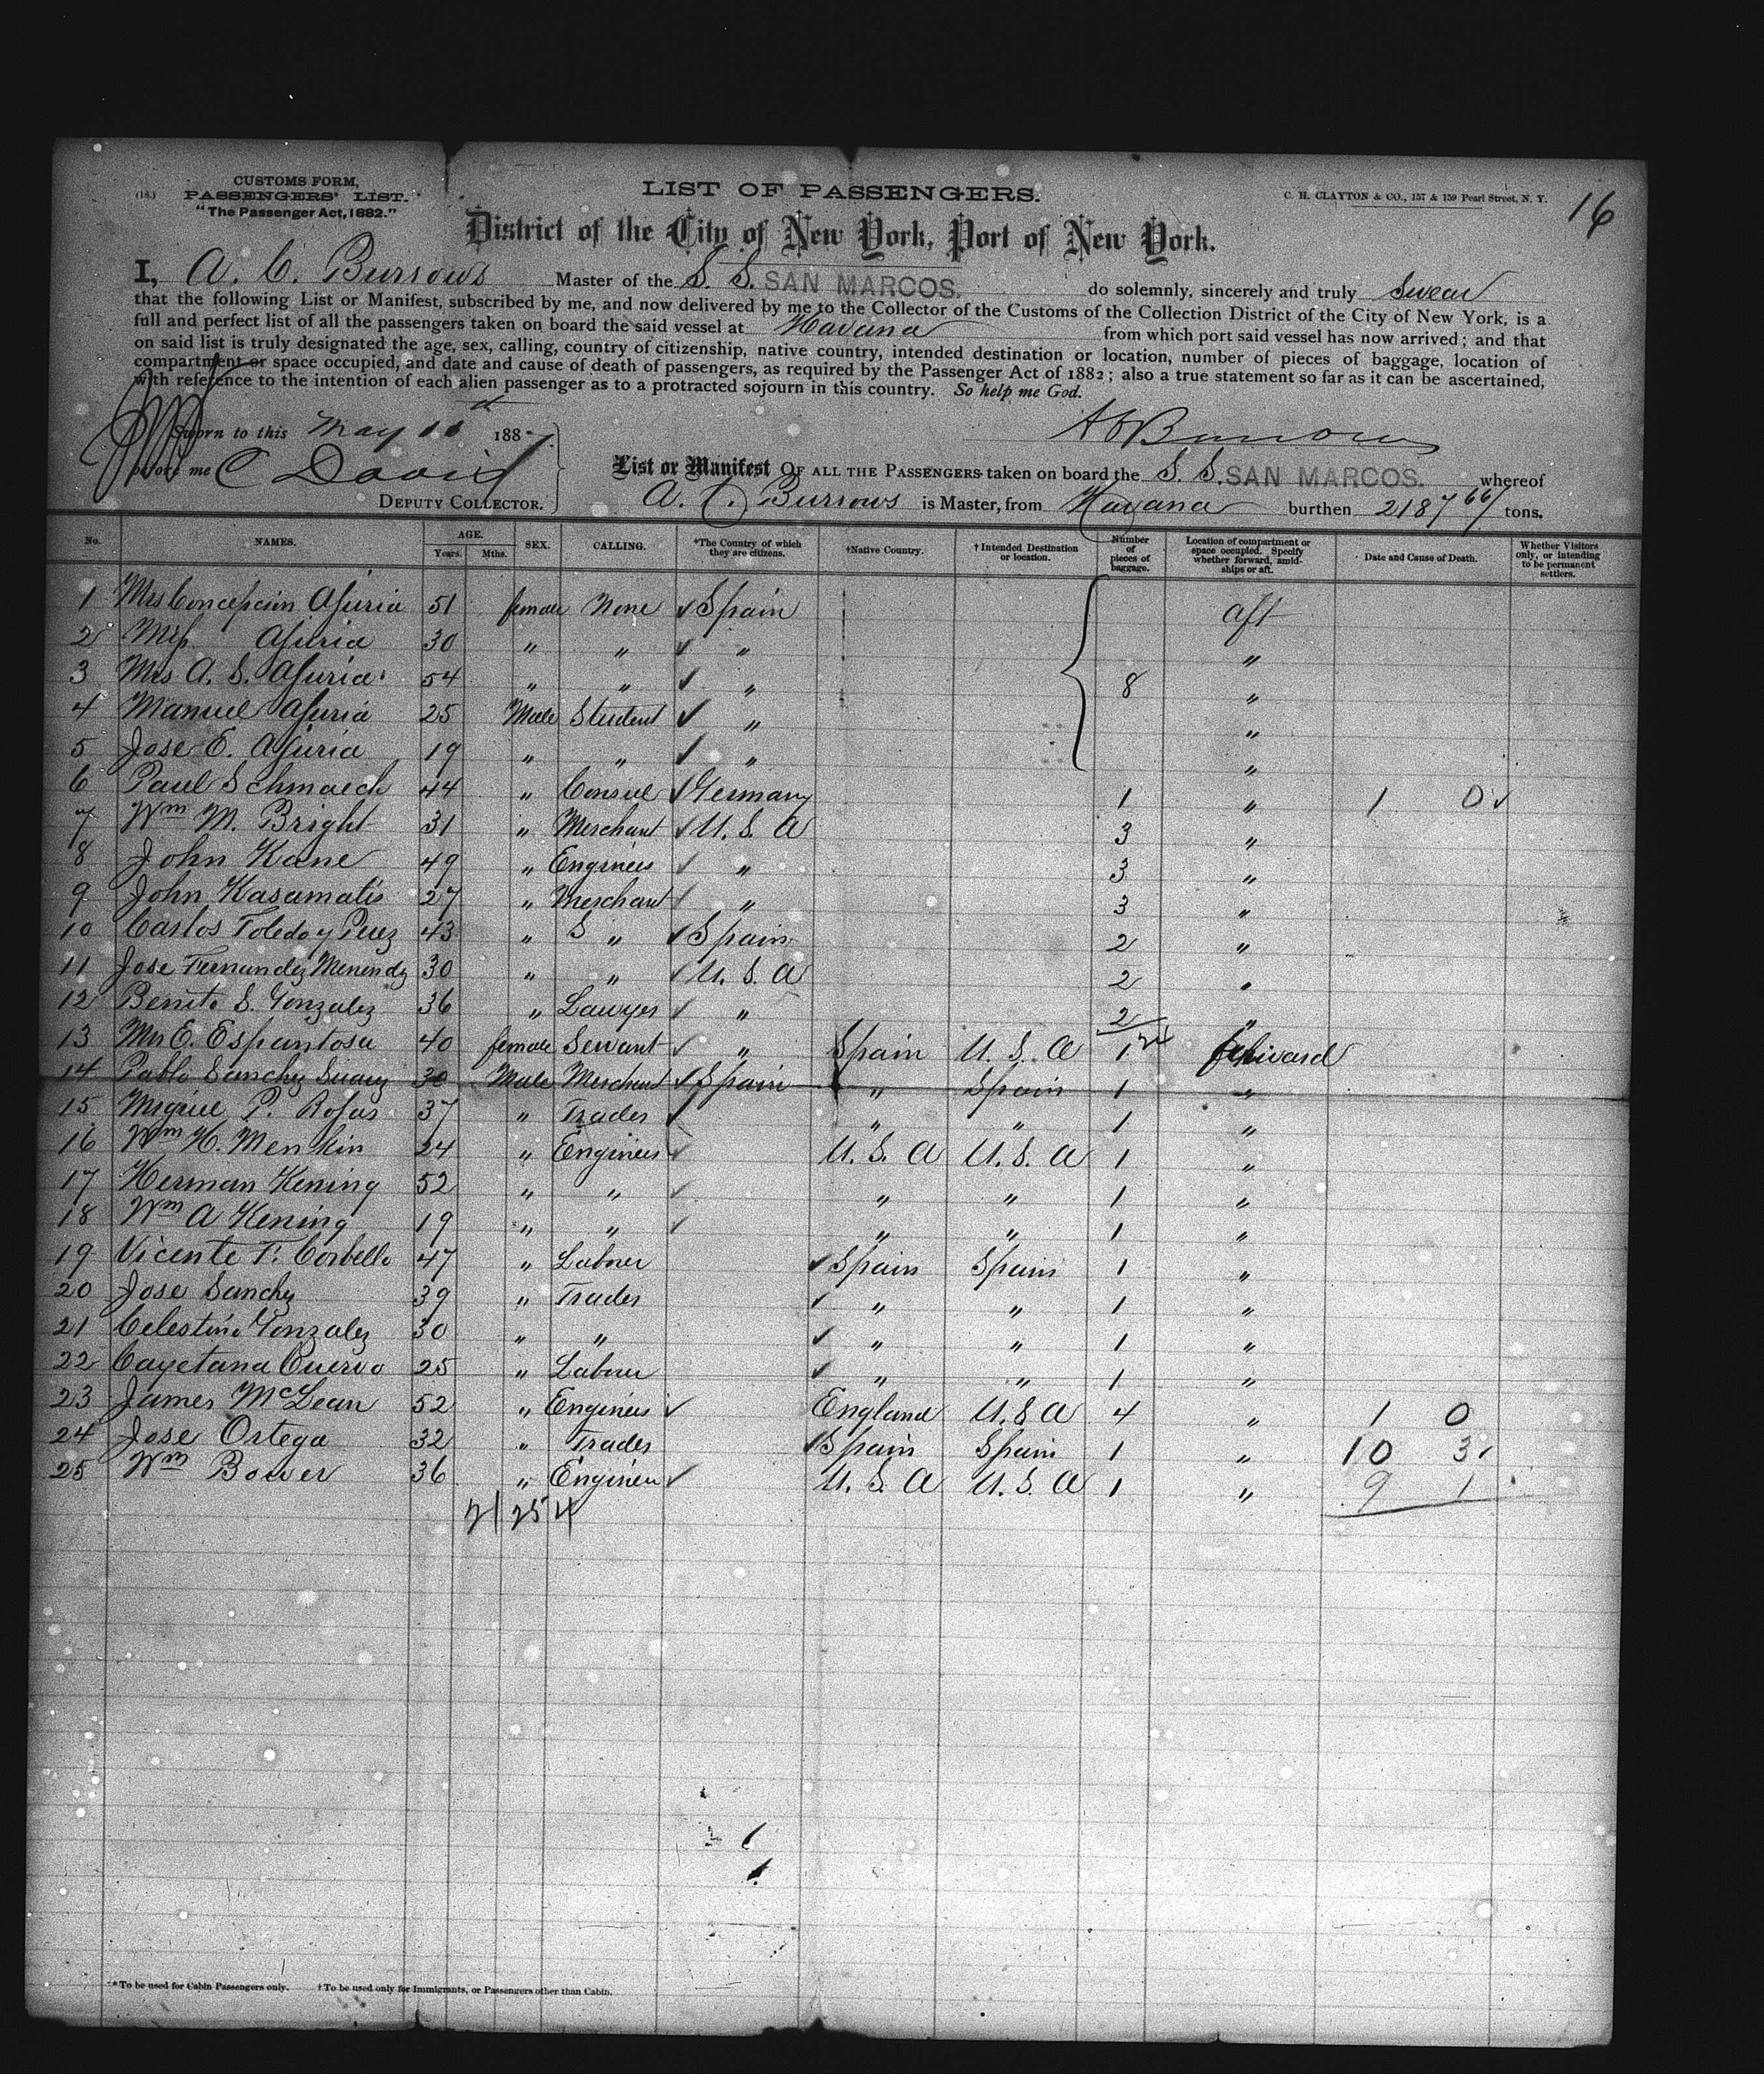 CUSTOMS FORM,
PASSENGERS' LIST.
"The Passenger Act, 1882."
LIST OF PASSENGERS.
C. H. CLAYTON & CO., 157 & 159 Pearl Street, N. Y.
16
District of the City of New York, Port of New York.
I, A. C. Burrows Master of the S. S. SAN MARCOS. do solemnly, sincerely and truly swear
that the following List or Manifest, subscribed by me, and now delivered by me to the Collector of the Customs of the Collection District of the City of New York, is a
full and perfect list of all the passengers taken on board the said vessel at Havana from which port said vessel has now arrived; and that
on said list is truly designated the age, sex, calling, country of citizenship, native country, intended destination or location, number of pieces of baggage, location of
compartment or space occupied, and date and cause of death of passengers, as required by the Passenger Act of 1882; also a true statement so far as it can be ascertained,
with reference to the intention of each alien passenger as to a protracted sojourn in this country. So help me God.
Sworn to this May 188
before me C David
DEPUTY COLLECTOR.
A C Burrows
List or Manifest OF ALL THE PASSENGERS taken on board the S. S. SAN MARCOS. whereof
A. C. Burrows is Master, from Havana burthen 2187 67/ tons.
No. NAMES. AGE. Years. Mths. SEX. CALLING. *The Country of which they are citizens. †Native Country. †Intended Destination or location. Number of pieces of baggage. Location of compartment or space occupied. Specify whether forward, amidships or aft. Date and Cause of Death. Whether Visitors only, or intending to be permanent settlers.
1 Mrs Concepcion Ajuria 51 female None Spain aft
2 Miss Ajuria 30 " " " "
3 Mrs A. S. Ajuria 54 " " " 8 "
4 Manuel Ajuria 25 Male Student " "
5 Jose E. Ajuria 19 " " " "
6 Paul Schmaeck 44 " Consul Germany 1 " 1 0
7 Wm M. Bright 31 " Merchant U. S. A 3 "
8 John Kane 49 " Engineer " 3 "
9 John Kasamatis 27 " Merchant " 3 "
10 Carlos Toledo y Perez 43 " " Spain 2 "
11 Jose Fernandez Menendz 30 " " U. S. A 2 "
12 Benito S. Gonzalez 36 " Lawyer " 2 "
13 Mrs E. Espantosa 40 female Servant " Spain U. S. A 1 forward
14 Pablo Sanchz Suarz 30 Male Merchant Spain " Spain 1 "
15 Miguel P. Rojas 37 " Trader " " 1 "
16 Wm H. Menkin 24 " Engineer U. S. A U. S. A 1 "
17 Herman Kening 52 " " " " 1 "
18 Wm A Kening 19 " " " " 1 "
19 Vicente F. Corbello 47 " Laborer Spain Spain 1 "
20 Jose Sanchz 39 " Trader " " 1 "
21 Celestino Gonzalez 30 " " " " 1 "
22 Cayetana Cuervo 25 " Laborer " " 1 "
23 James McLean 52 " Engineer England U. S. A 4 " 1 0
24 Jose Ortega 32 " Trader Spain Spain 1 " 10 3
25 Wm Bower 36 " Engineer U. S. A U. S. A 1 " 9 1
21 25 4
*To be used for Cabin Passengers only. †To be used only for Immigrants, or Passengers other than Cabin.